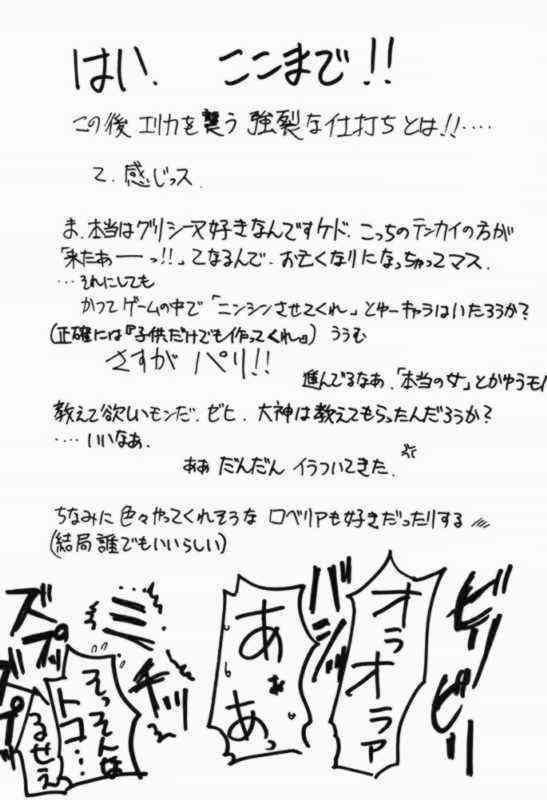 はい、ここまで!!
この後エリカを襲う強裂な仕打ちとは!!‥‥
て、感じっス、
ま、本当はグリシーヌ好きなんですケド、こっちのテンカイの方が
「来たあーっ!!」てなるんで、お亡くなりになっちゃってマス、
‥それにしても
かつてゲームの中で「ニンシンさせてくれ」とゆーキャラはいたろうか?
(正確には『子供だけでも作ってくれ』) ううむ
さすが パリ!!
進んでるなあ、「本当の女」とかゆうモノ
教えて欲しいモンだ、ゼヒ、大神は教えてもらったんだろうか?
‥‥いいなあ、
ああ だんだん イラついてきた、
ちなみに色々やってくれそうな ロベリアも好きだったりする
(結局誰でもいいらしい)
ビリ
ビリ
オラオラァ
バシ
あぁあっ
ミチッ
そっそんな
トコ‥
るせえ
ズプッ
ズプッ